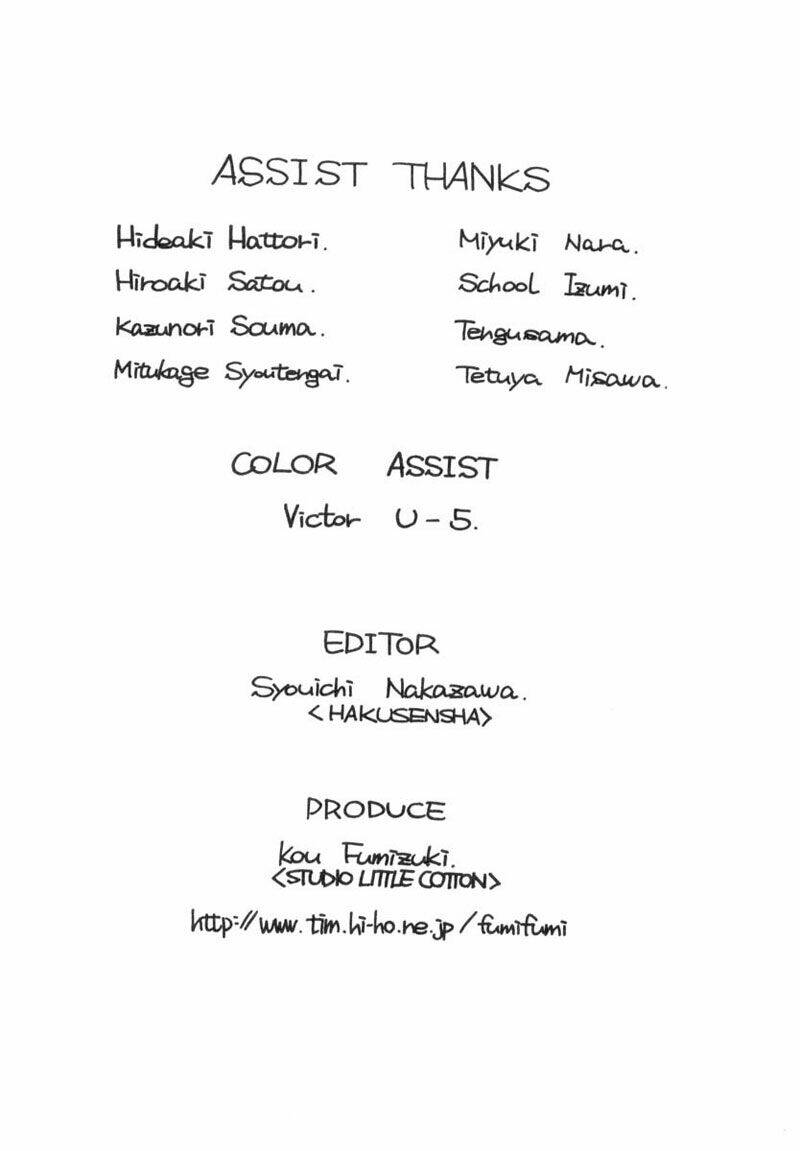 ASSIST THANKS
Hideaki Hattori.
Hiroaki Satou.
Kazunori Souma.
Mitukage Syoutengai.
Miyuki Nara.
School Izumi.
Tengusama.
Tetuya Misawa.
COLOR ASSIST
Victor U-5.
EDITOR
Syouichi Nakazawa.
<HAKUSENSHA>
PRODUCE
Kou Fumizuki.
<STUDIO LITTLE COTTON>
http://www.tim.hi-ho.ne.jp/fumifumi